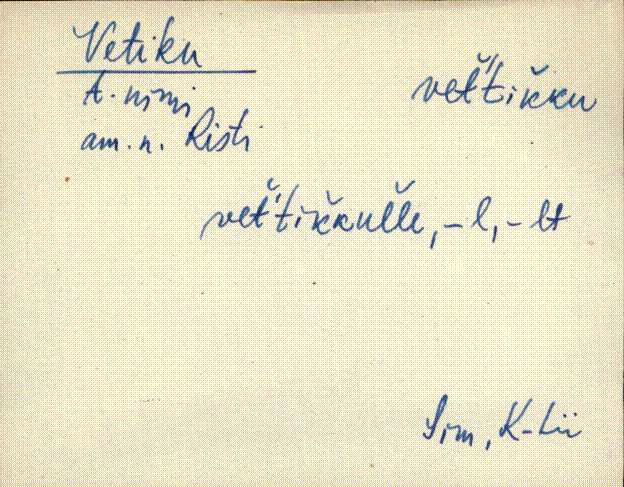 Vetiku
t. nimi
am. n. Risti
vet̆'t̆ik̆ku
vet̆'t̆ik̆kulle, -l, -lt
Sim, K-Lii